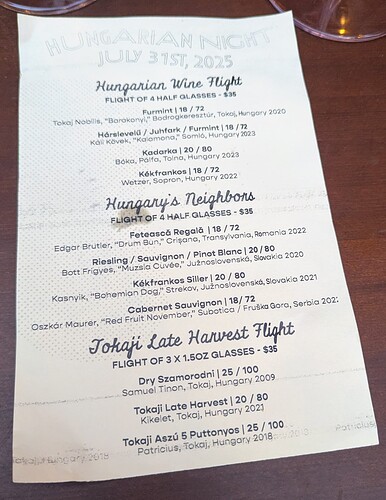 HUNGARIAN NIGHT
JULY 31ST, 2025
Hungarian Wine Flight
FLIGHT OF 4 HALF GLASSES - $35
Furmint | 18 / 72
Tokaj Nobilis, "Barakonyi," Bodrogkeresztúr, Tokaj, Hungary 2020
Hárslevelű / Juhfark / Furmint | 18 / 72
Káli Kövek, "Kalomona," Somló, Hungary 2023
Kadarka | 20 / 80
Bóka, Pálfa, Tolna, Hungary 2023
Kékfrankos | 18 / 72
Wetzer, Sopron, Hungary 2022
Hungary's Neighbors
FLIGHT OF 4 HALF GLASSES - $35
Fetească Regală | 18 / 72
Edgar Brutler, "Drum Bun," Crișana, Transylvania, Romania 2022
Riesling / Sauvignon / Pinot Blanc | 20 / 80
Bott Frigyes, "Muzsla Cuvée," Južnoslovenská, Slovakia 2020
Kékfrankos Siller | 20 / 80
Kasnyik, "Bohemian Dog," Strekov, Južnoslovenská, Slovakia 2021
Cabernet Sauvignon | 18 / 72
Oszkár Maurer, "Red Fruit November," Subotica / Fruška Gora, Serbia 202
Tokaji Late Harvest Flight
FLIGHT OF 3 X 1.5OZ GLASSES - $35
Dry Szamorodni | 25 / 100
Samuel Tinon, Tokaj, Hungary 2009
Tokaji Late Harvest | 20 / 80
Kikelet, Tokaj, Hungary 2021
Tokaji Aszú 5 Puttonyos | 25 / 100
Patricius, Tokaj, Hungary 2018